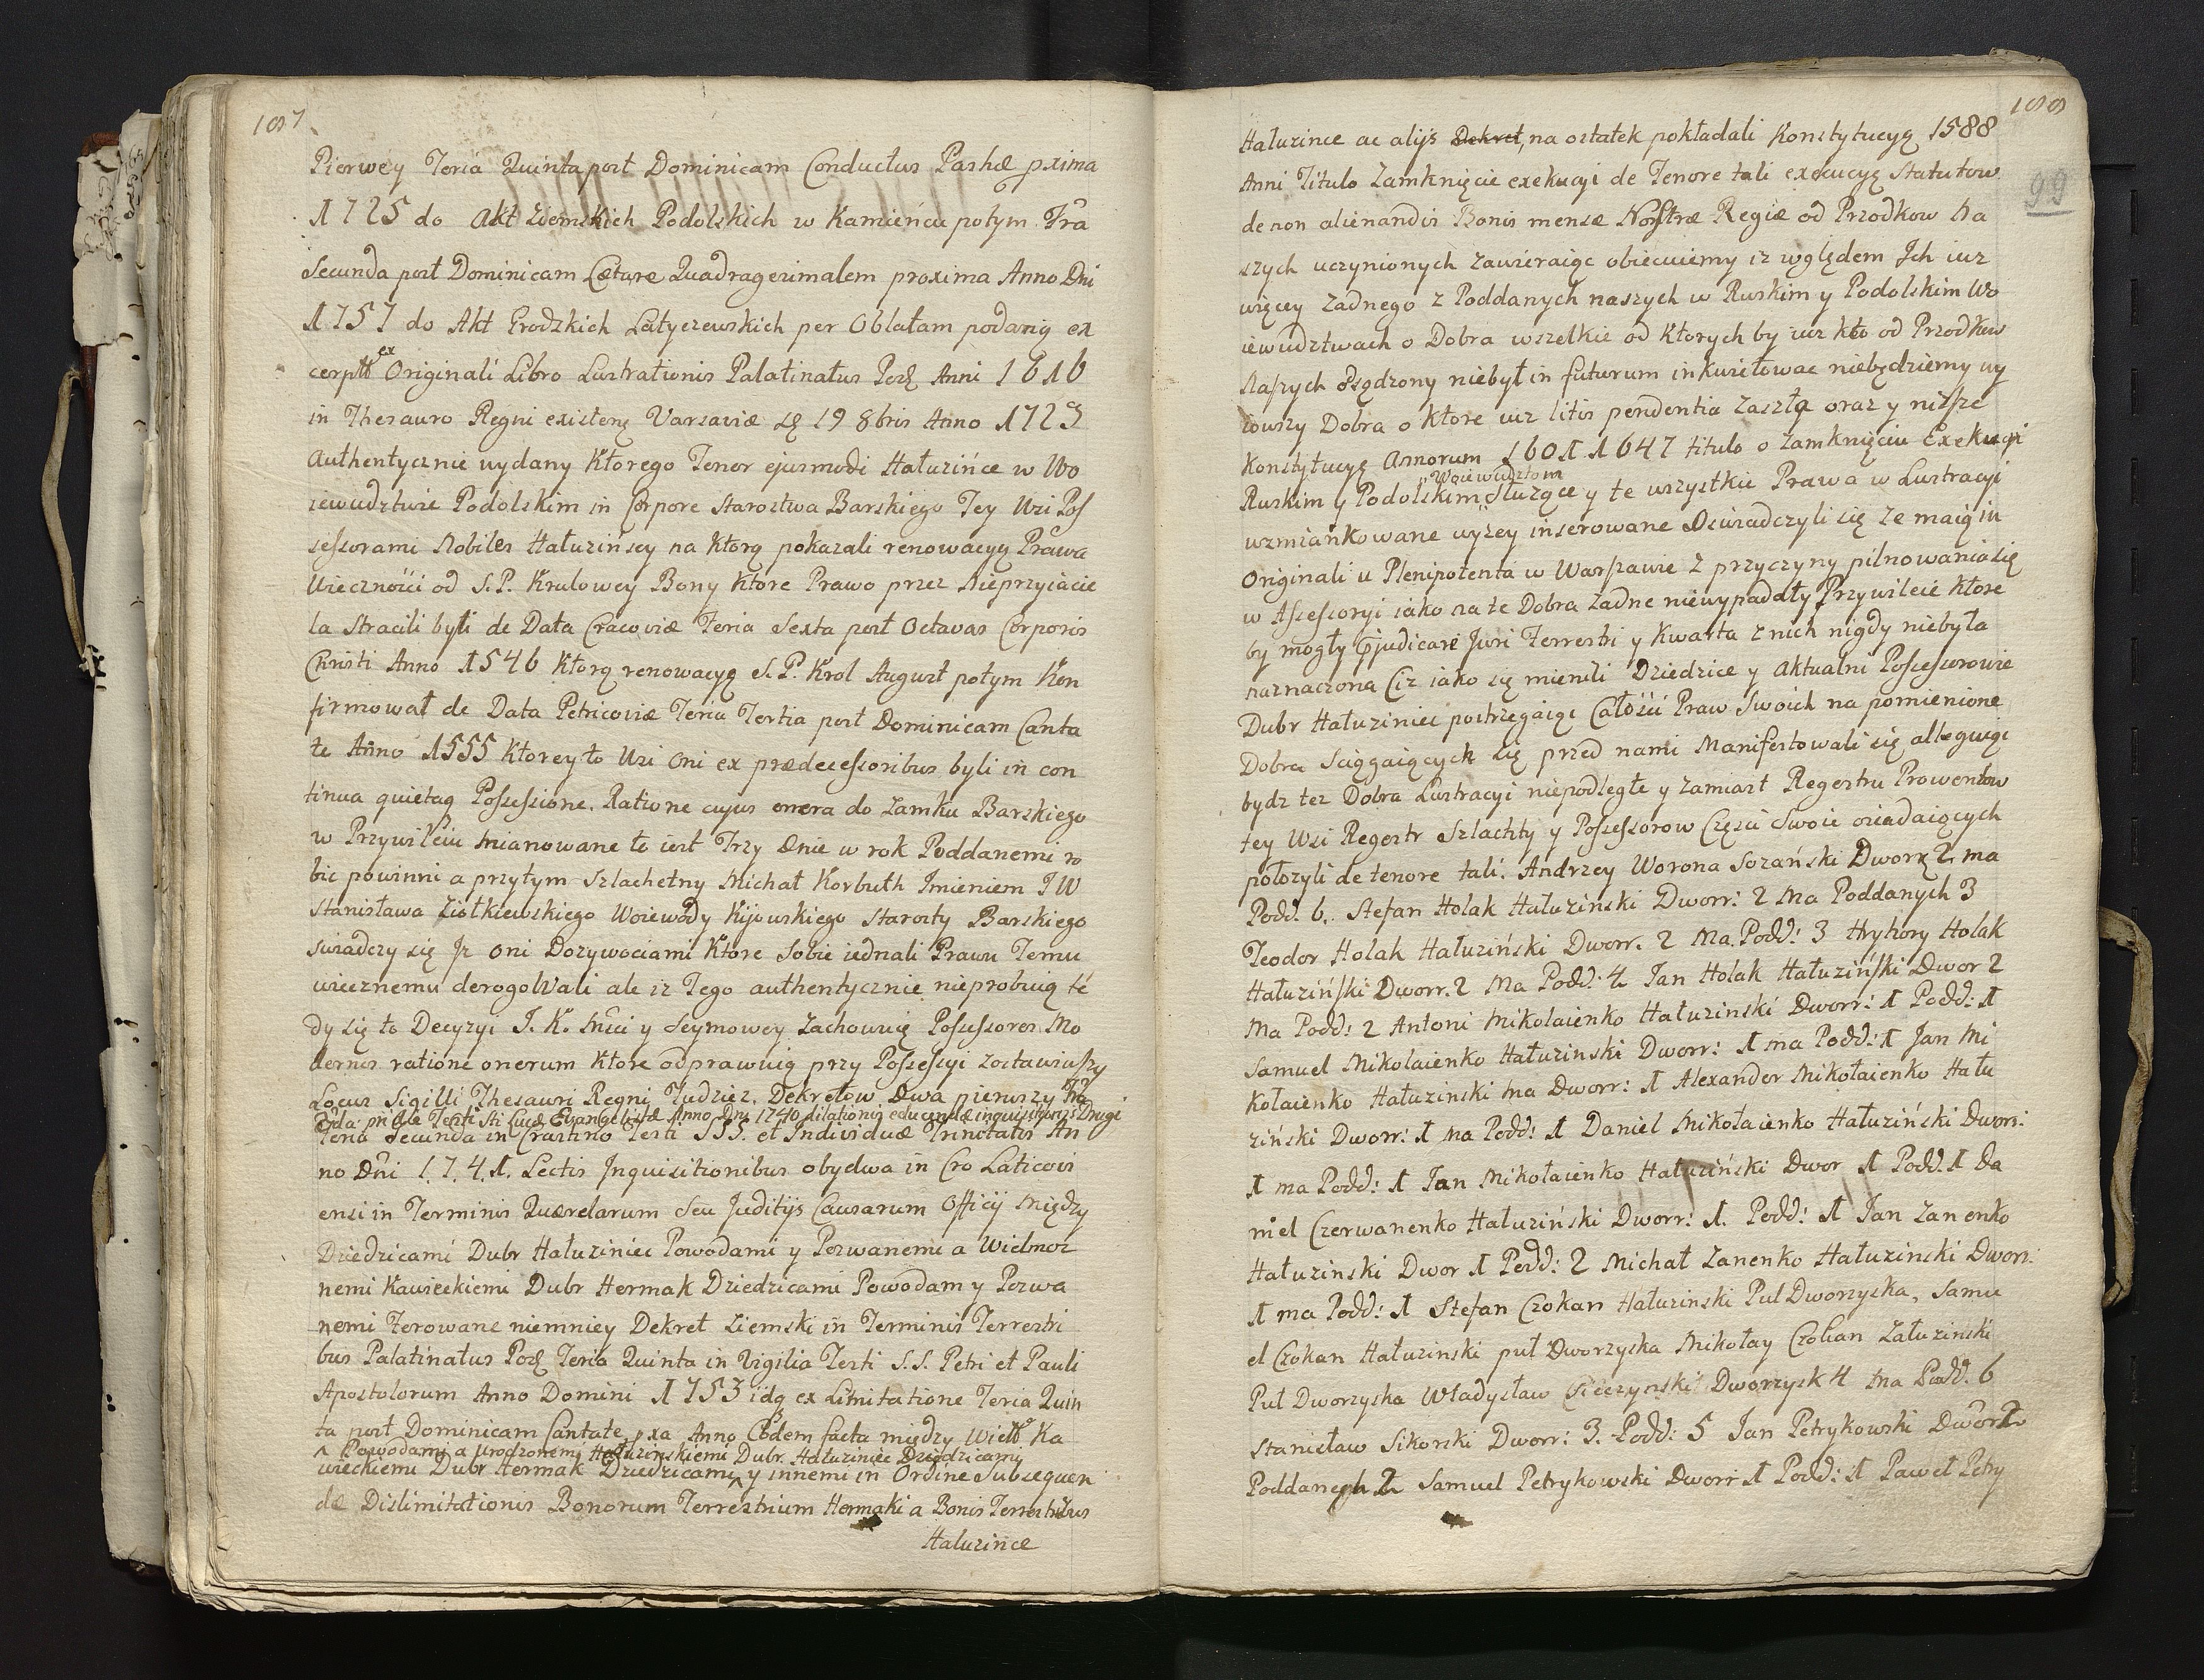 187
Pierwey Feria Quinta post Dominicam Conductus Pashæ pxima
1725 do Akt Ziemskich Podolskich w Kamieńcu potym Fra
Secunda post Dominicam Lætare Quadragesimalem proxima Anno Dni
1757 do Akt Grodzkich Latyczewskich per Oblatam podany ex
cerptt ex Originali Libro Lustrationis Palatinatus Anni 1616
in Thesauro Regni Varsaviæ 19 8bris Anno 1723
Authentycznie wydany Ktorego Tenor ejusmodi Hałuzińce w Wo
iewudztwie Podolskim in Corpore Starostwa Barskiego Tey Wsi Pos
sessorami Nobiles Hałuzińscy na Ktorą pokazali renowacyą Prawa
Wieczności od S. P. Krulowey Bony Ktore Prawo przez Nieprzyiacie
la Stracili byli de Data Cracoviæ Feria Sexta post Octavas Corporis
Christi Anno 1546 Ktorą renowacyę S. P. Krol August potym Kon
firmował de Data Petricoviæ Feria Tertia post Dominicam Canta
te Anno 1555 Ktorey to Wsi Oni ex prædecessoribus byli in con
tinua quietaq Possessione. Ratione cujus onera do Zamku Barskiego
w Przywileiu mianowane to iest Trzy Dnie w rok Poddanemi ro
bic powinni a przytym Szlachetny Michał Korbuth Imieniem J W
Stanisława Ziołkiewskiego Woiewody Kijowskiego Starosty Barskiego
swiadczy się Jz oni Dozywociami Ktore Sobie iednali Prawu Temu
wiecznemu derogoWali ale iz Tego authentycznie nieprobuią te
dy się to Decyzyi J. K. Mci y Seymowey Zachowuię Possessores Mo
dernos ratione onerum Ktore odprawuią przy Possessyi zostawiwszy
Locus Sigilli Thesauri Regni Tudziez Dekretow Dwa pierwszy Fra
Festi Sti Lucæ Evangelistæ Anno Dni 1740 dilationis educendæ inquisitionis Drugi
Feria Secunda in Crastino Festi SSS. et Individuæ Trinitatis An
no Dni 1.7.4.1. Lectis Inquisitionibus obydwa in Cro Laticovi
ensi in Terminis Quærelarum Seu Juditijs Causarum Officij Między
Dziedzicami Dubr Hałuziniec Powodami y Pozwanemi a Wielmoz
nemi Kawieckiemi Dubr Hermak Dziedzicami Powodam y Pozwa
nemi Ferowane niemniey Dekret Ziemski in Terminis Terrestri
bus Palatinatus Feria Quinta in Vigilia Festi S.S. Petri et Pauli
Apostolorum Anno Domini 1753 idq ex Limitatione Feria Quin
ta post Dominicam Cantate pxa Anno Eodem facta między Wielb Ka
Powodami a urodzonemi Hałuzinskiemi Dubr. Hałuziniec Dziedzicami
wieckiemi Dubr Hermak Dziedzicami y innemi in Ordine Subsequen
dæ Dislimitationis Bonorum Terrestrium Hermaki a Bonis Terrestribus
Hałuzińce
188
99
Hałuzince ac alijs Dekret, na ostatek pokładali Konstytucyą 1588
Anni Titulo Zamknięcie exekucyi de Tenore tali exekucyą Statutow
de non alienandis Bonis mensæ Nostræ Regiæ od Przodkow Na
szych uczynionych zawieraiąc obiecuiemy iz względem Jch iuz
więcey Zadnego z Poddanych naszych w Ruskim y Podolskim Wo
iewudztwach o Dobra wszelkie od Ktorych by iuz kto od Przodkow
Naszych osądzony niebył in futurum inkwietowac niebędziemy wy
iowszy Dobra o Ktore iuz litis pendentia Zaszła oraz y nizsze
Konstytucyę Annorum 1601 1647 titulo o Zamknięciu Exekucyi
Woiewudztom
Ruskim y Podolskim Służące y te wszystkie Prawa w Lustracyi
wzmiankowane wyzey inserowane Oswiadczyli się ze maią in
Originali u Plenipotenta w Warszawie z przyczyny pilnowania się
w Assessoryi iako na te Dobra zadne niewypadały Przywileie Ktore
by mogły pjudicare Juri Terrestri y Kwarta z nich nigdy niebyła
naznaczona Ciz iako się mienili Dziedzice y aktualni Possessorowie
Dubr Hałuziniec postrzegaiąc Całości Praw Swoich na pomienione
Dobra Sciągaiących się przed nami Manifestowali się alleguiąc
bydz tez Dobra Lustracyi niepodległe y zamiast Regestru Prowentow
tey Wsi Regestr Szlachty y Possessorow Części Swoie osiadaiących
połozyli de tenore tali. Andrzey Worona Sozański Dworz 2 ma
Podd. 6. Stefan Holak Hałuziński Dworz: 2 Ma Poddanych 3
Teodor Holak Hałuziński Dworz. 2 Ma. Podd: 3 Hryhory Holak
Hałuziński Dworz. 2 Ma Podd: 4 Jan Holak Hałuziński Dwor 2
Ma Podd: 2 Antoni Mikolaienko Hałuzinski Dworz: 1 Podd: 1
Samuel Mikolaienko Hałuzinski Dworz: 1 ma Podd: 1 Jan Mi
kołaienko Hałuzinski ma Dworz: 1 Alexander Mikołaienko Hału
ziński Dworz: 1 Ma Podd: 1 Daniel Mikołaienko Hałuziński Dworz:
1 ma Podd: 1 Jan Mikołaienko Hałuziński Dwor 1 Podd. 1 Da
niel Czerwanenko Hałuziński Dworz: 1. Podd: 1 Jan Zanenko
Hałuzinski Dwor 1 Podd: 2 Michał Zanenko Hałuzinski Dworz:
1 ma Podd: 1 Stefan Czokan Hałuzinski Puł Dworzyska, Samu
el Czokan Hałuzinski puł Dworzyska Mikołay Czokan Załuzinski
Puł Dworzyska Władysław Dworzysk 4 Ma Podd. 6
Stanisław Sikorski Dworz: 3. Podd: 5 Jan Petrykowski Dworz 2
Poddanych 2 Samuel Petrykowski Dworz 1 Podd: 1 Paweł Petry